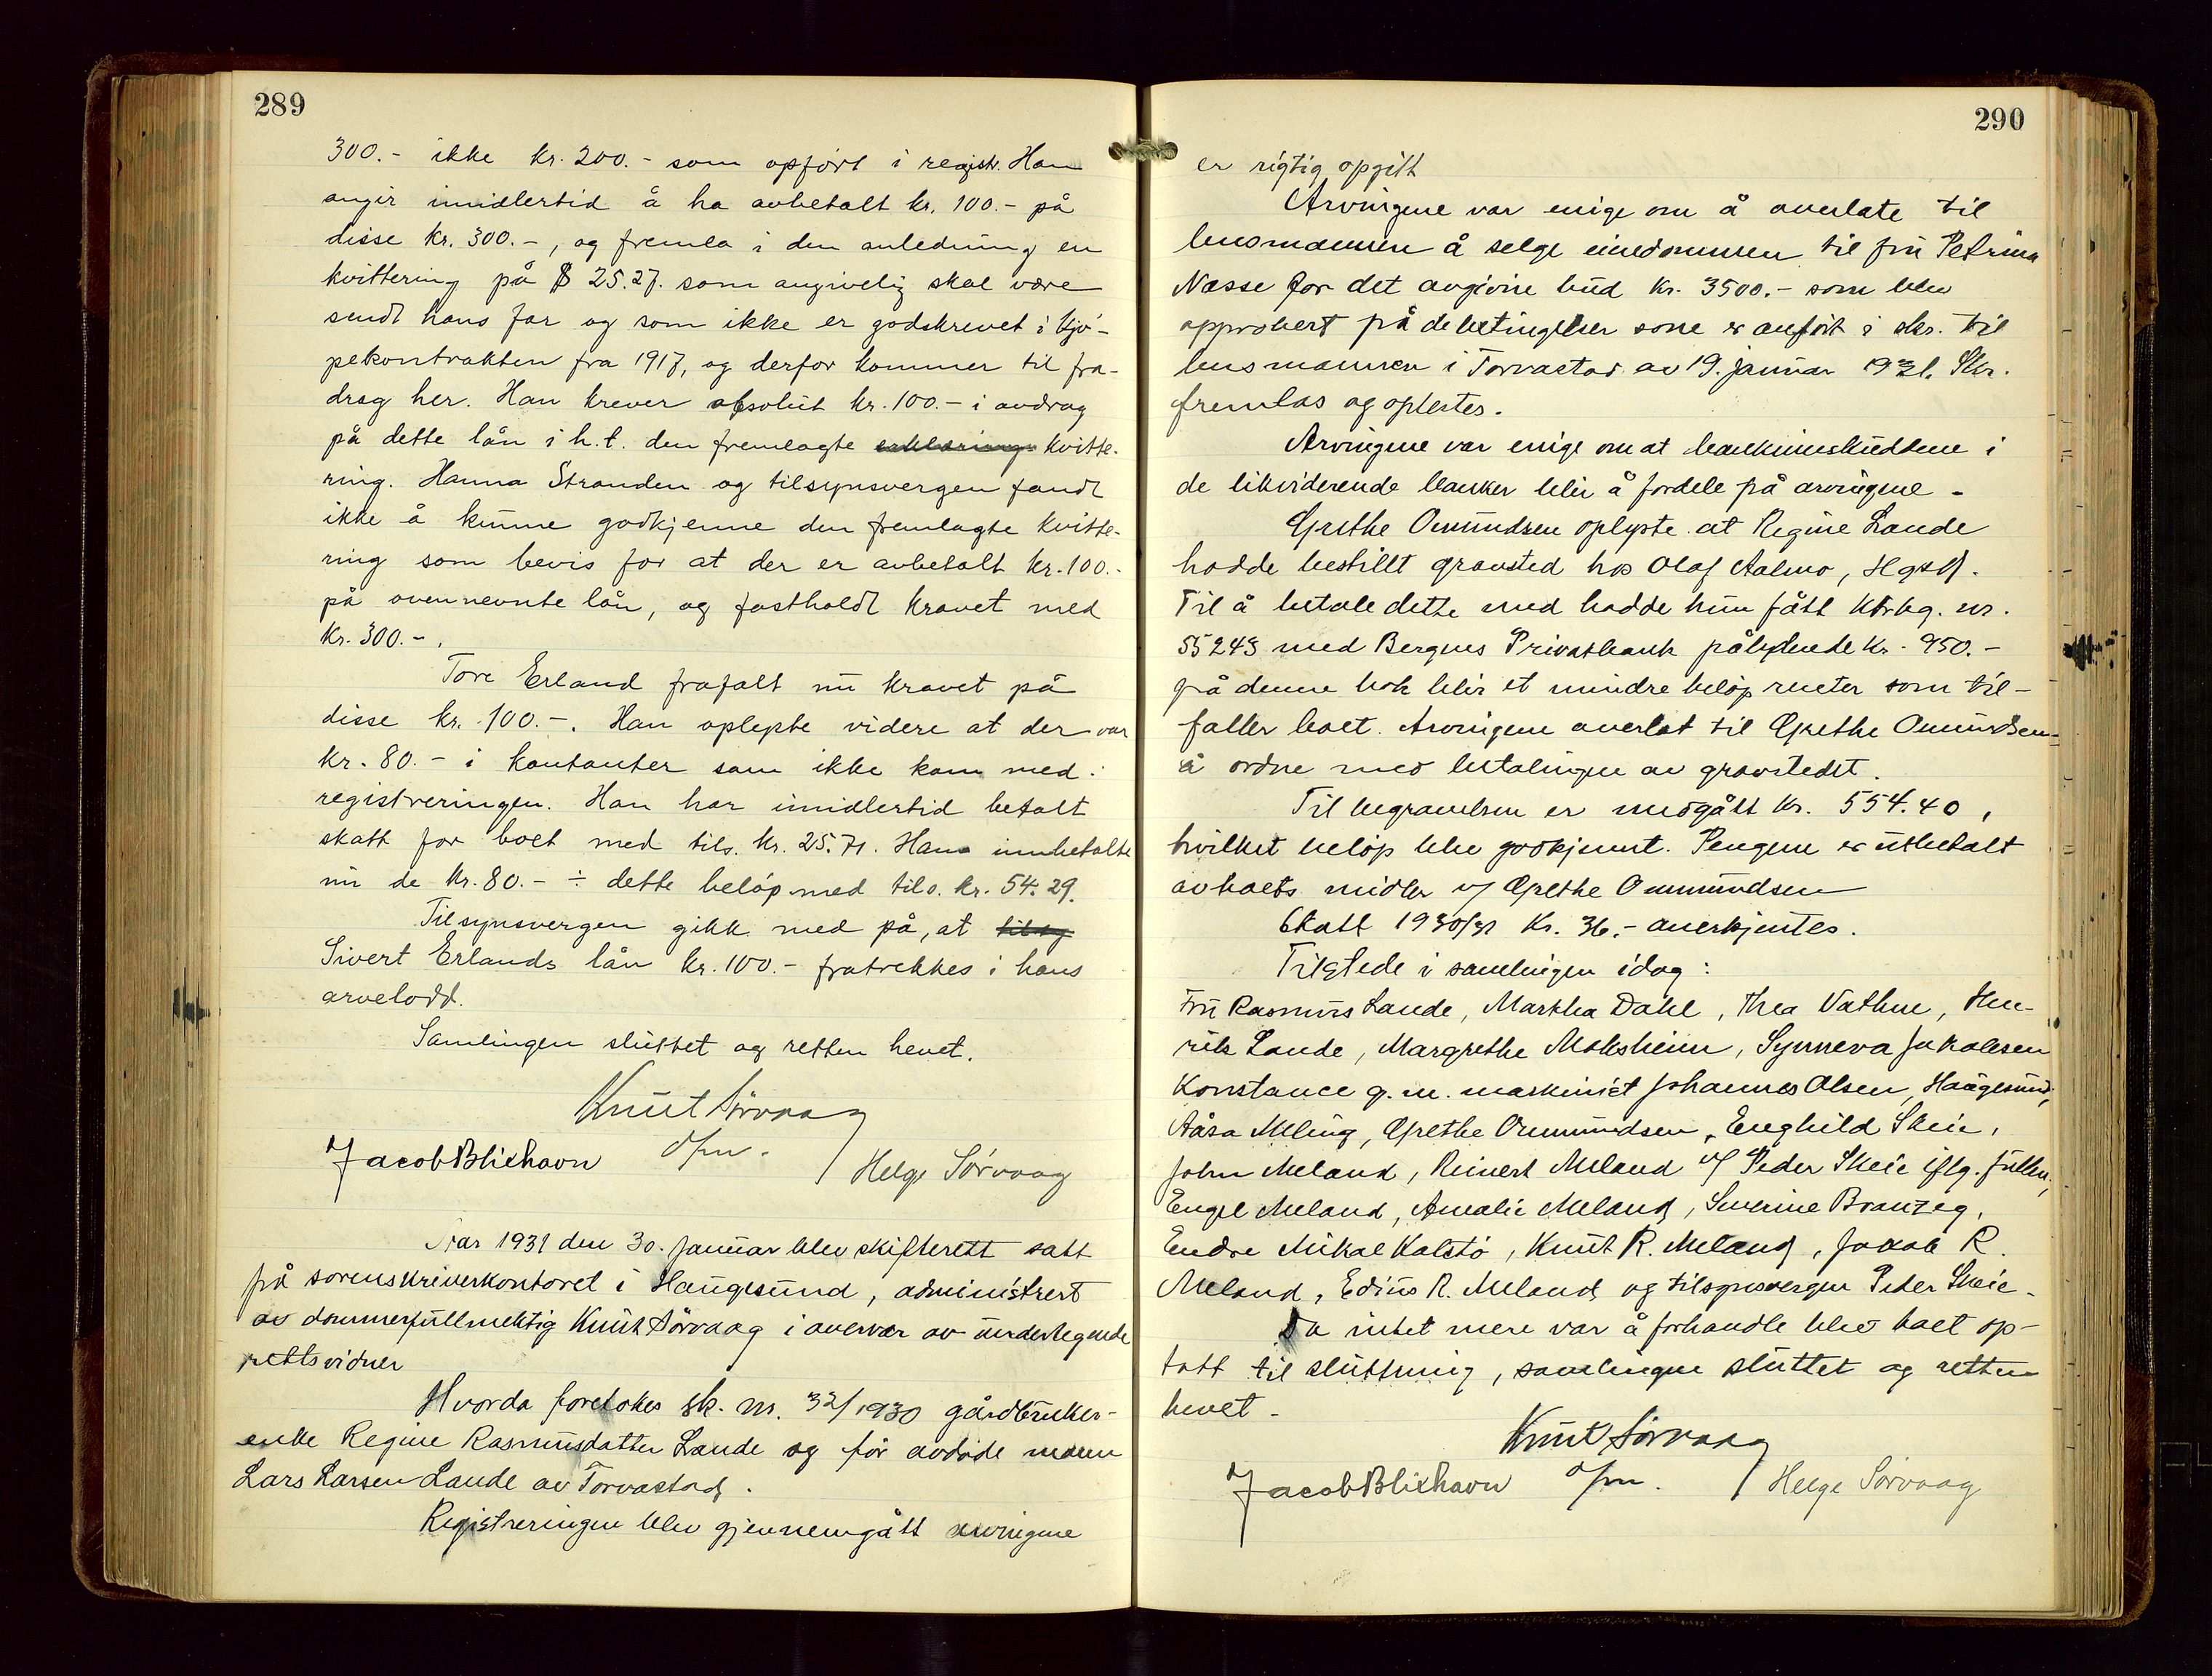 289
300.- ikke kr. 200.- som opført i registr. Han
angir imidlertid å ha avbetalt kr. 100.- på
disse kr. 300.-, og fremla i den anledning en
kvittering på $ 25.27. som angivelig skal være
sendt hans far og som ikke er godskrevet i kjø-
pekontrakten fra 1917, og derfor kommer til fra-
drag her. Han krever absolut kr. 100.- i avdrag
på dette lån i h.t. den fremlagte erklæring kvitte-
ring. Hanna Stranden og tilsynsvergen fandt
ikke å kunne godkjenne den fremlagte kvitte-
ring som bevis for at der er avbetalt kr. 100.-
på ovennevnte lån, og fastholdt kravet med
kr. 300.-.
Tore Erland frafalt nu kravet på
disse kr. 100.-. Han oplyste videre at der var
kr. 80.- i kontanter som ikke kom med i
registreringen. Han har imidlertid betalt
skatt for boet med tils. kr. 25.71. Han innbetalte
nu de kr. 80.- ÷ dette beløp med tils. kr. 54.29.
Tilsynsvergen gikk med på, at
Sivert Erlands lån kr. 100.- fratrekkes i hans
arvelodd.
Samlingen sluttet og retten hevet.
Knut Sørvaag
d/fm.
Jacob Blixhavn / Helge Sørvaag
År 1931 den 30. januar blev skifterett satt
på sorenskriverkontoret i Haugesund, administrert
av dommerfullmektig Knut Sørvaag i overvær av undertegnede
rettsvidner
Hvorda foretokes sk. nr. 32/1930 gårdbruker-
enke Regine Rasmusdatter Lande og før avdøde mann
Lars Larsen Lande av Torvastad.
Registreringen blev gjennemgått arvingene
290
er rigtig opgitt
Arvingene var enige om å overlate til
lensmannen å selge eiendommen til fru Petrina
Næsse for det avgivne bud kr. 3500.- som blev
approbert på de betingelser som er anført i skr. til
lensmannen i Torvastad av 19. januar 1931. Skr.
fremlas og oplestes.
Arvingene var enige om at bankinnskuddene i
de likviderende banker blir å fordele på arvingene.
Grethe Omundsen oplyste at Regine Lande
hadde bestillt gravsted hos Olaf Aalmo, Hgsd.
Til å betale dette med hadde hun fått ktrbg. nr.
55243 med Bergens Privatbank pålydende kr. 950.-
på denne bok blir et mindre beløp renter som til-
faller boet. Arvingene overlot til Grethe Omundsen
å ordne med betalingen av gravstedet.
Til begravelsen er medgått kr. 554.40,
hvilket beløp blev godkjent. Pengene er utbetalt
av boets midler v/ Grethe Ommundsen
Skatt 1930/31 kr. 36.- anerkjentes.
Tilstede i samlingen idag:
Fru Rasmus Lande, Martha Dahl, Thea Vathne, Hen-
rik Lande, Margrethe Moksheim, Synneva Jakobsen
Konstance g. m. maskinist Johannes Olsen, Haugesund,
Aåsa Meling, Grethe Ommundsen, Enghild Skeie,
John Meland, Reinert Meland v/ Peder Skeie iflg. fullm.,
Engel Meland, Amalie Meland, Severine Branzeg,
Endre Mikal Kalstø, Knut R. Meland, Jakob R.
Meland, Edius R. Meland og tilsynsvergen Peder Skeie.
Da intet mere var å forhandle blev boet op-
tatt til sluttning, samlingen sluttet og retten
hevet.
Knut Sørvaag
d/fm.
Jacob Blixhavn / Helge Sørvaag